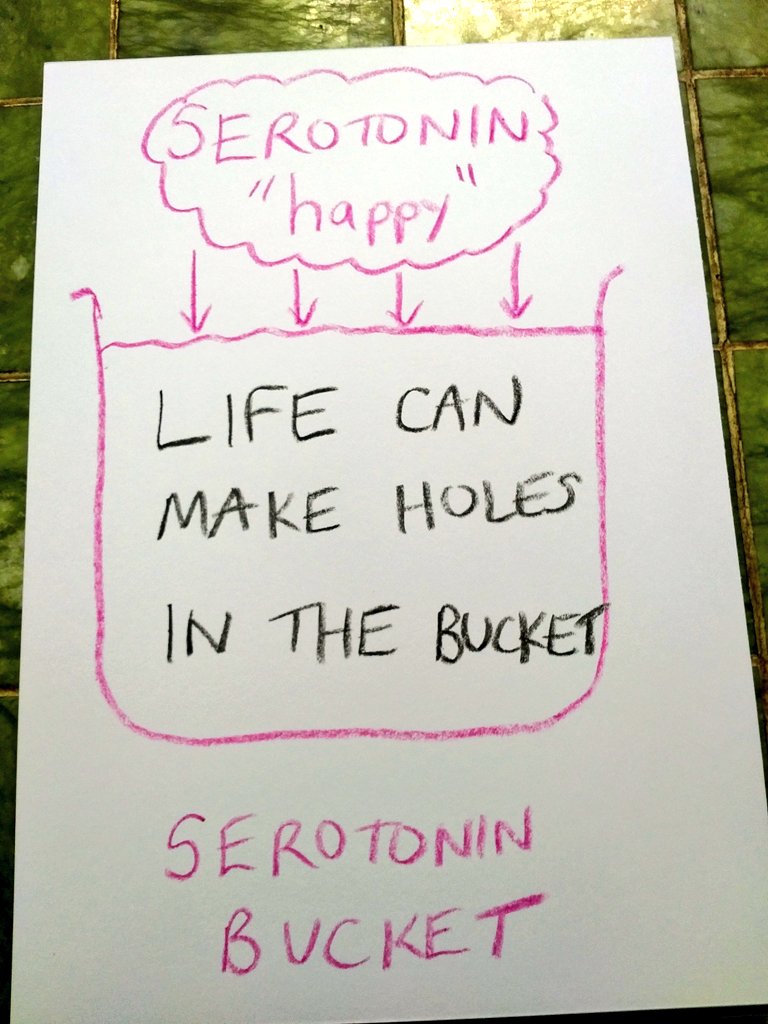 SEROTONIN
"happy"
LIFE CAN
MAKE HOLES
IN THE BUCKET
SEROTONIN
BUCKET